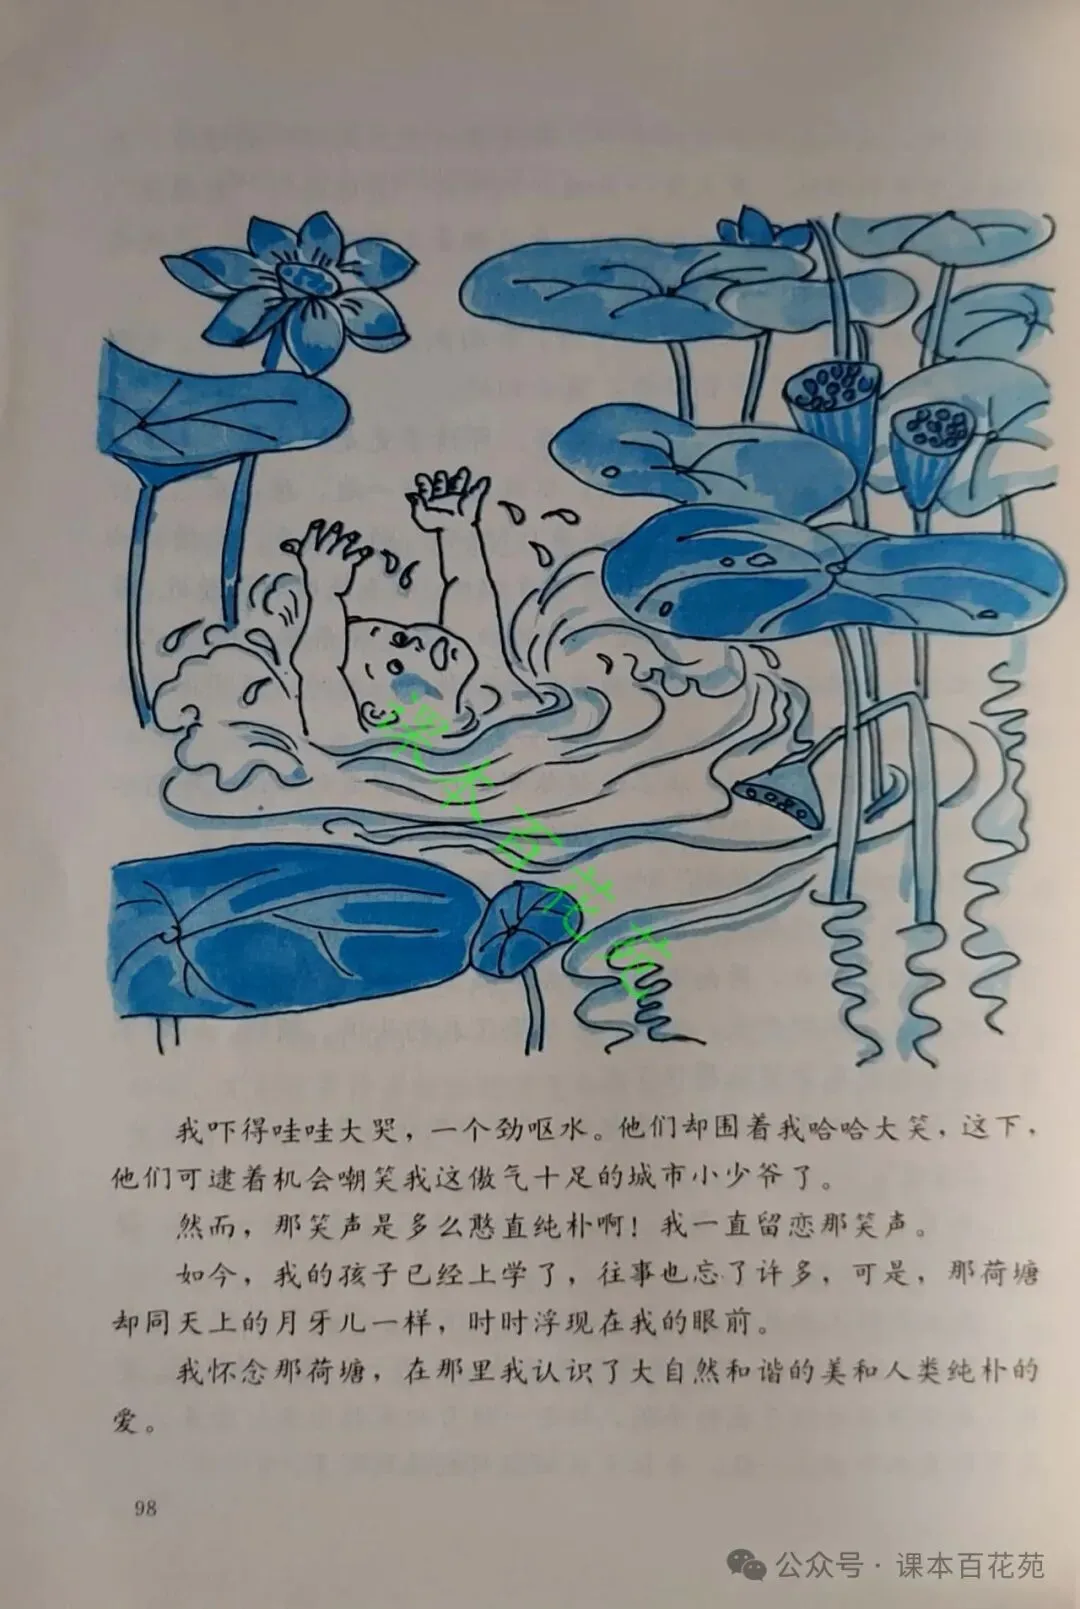 课本百花苑
我吓得哇哇大哭，一个劲呕水。他们却围着我哈哈大笑，这下，
他们可逮着机会嘲笑我这傲气十足的城市小少爷了。
然而，那笑声是多么憨直纯朴啊！我一直留恋那笑声。
如今，我的孩子已经上学了，往事也忘了许多，可是，那荷塘
却同天上的月牙儿一样，时时浮现在我的眼前。
我怀念那荷塘，在那里我认识了大自然和谐的美和人类纯朴的
爱。
98
公众号·课本百花苑